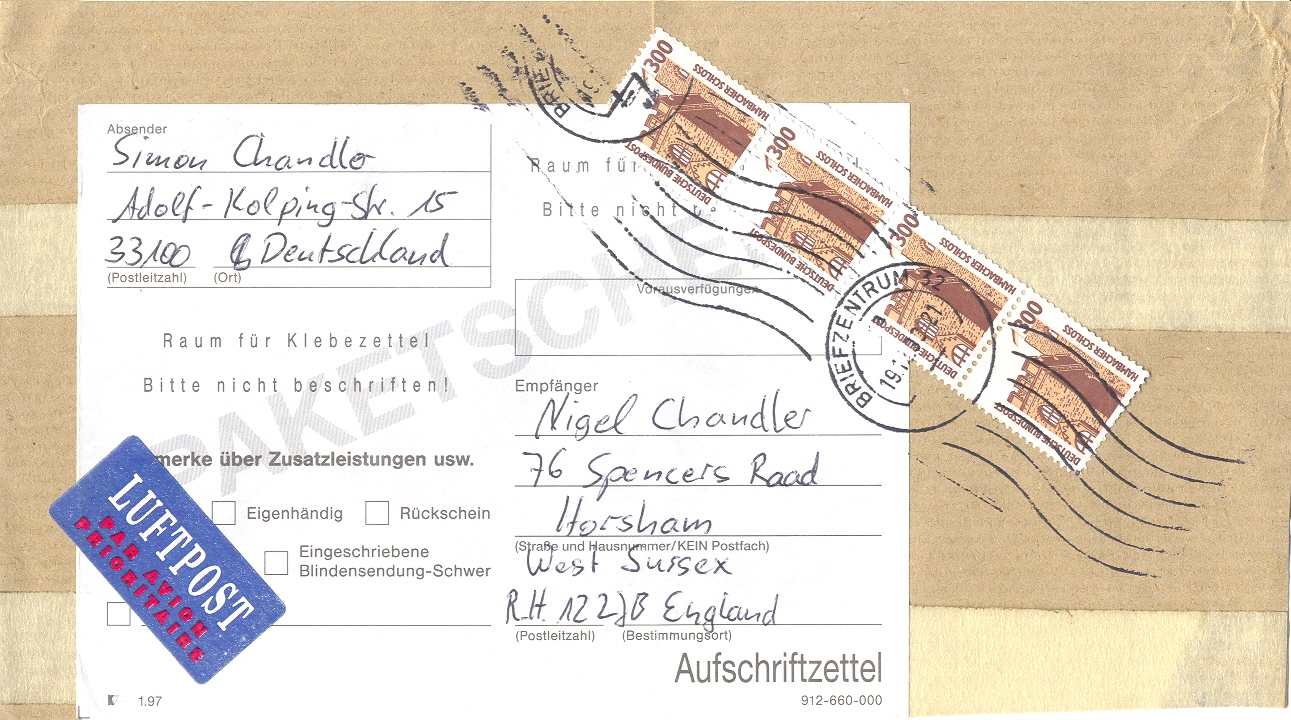 Absender
Simon Chandler
Adolf-Kolping-Str. 15
33100 Deutschland
(Postleitzahl) (Ort)
Raum für Klebezettel
Bitte nicht beschriften!
PAKETSCHE
merke über Zusatzleistungen usw.
Eigenhändig Rückschein
Eingeschriebene
Blindensendung-Schwer
LUFTPOST
PAR AVION
PRIORITAIRE
1.97
Raum für
Bitte nicht be
Vorausverfügungen
Empfänger
Nigel Chandler
76 Spencers Road
Horsham
(Straße und Hausnummer/KEIN Postfach)
West Sussex
R.H. 12 2JB England
(Postleitzahl) (Bestimmungsort)
Aufschriftzettel
912-660-000
300
HAMBACHER SCHLOSS
DEUTSCHE BUNDESPOST
300
HAMBACHER SCHLOSS
DEUTSCHE BUNDESPOST
300
HAMBACHER SCHLOSS
DEUTSCHE BUNDESPOST
300
HAMBACHER SCHLOSS
DEUTSCHE BUNDESPOST
BRIEFZENTRUM 32